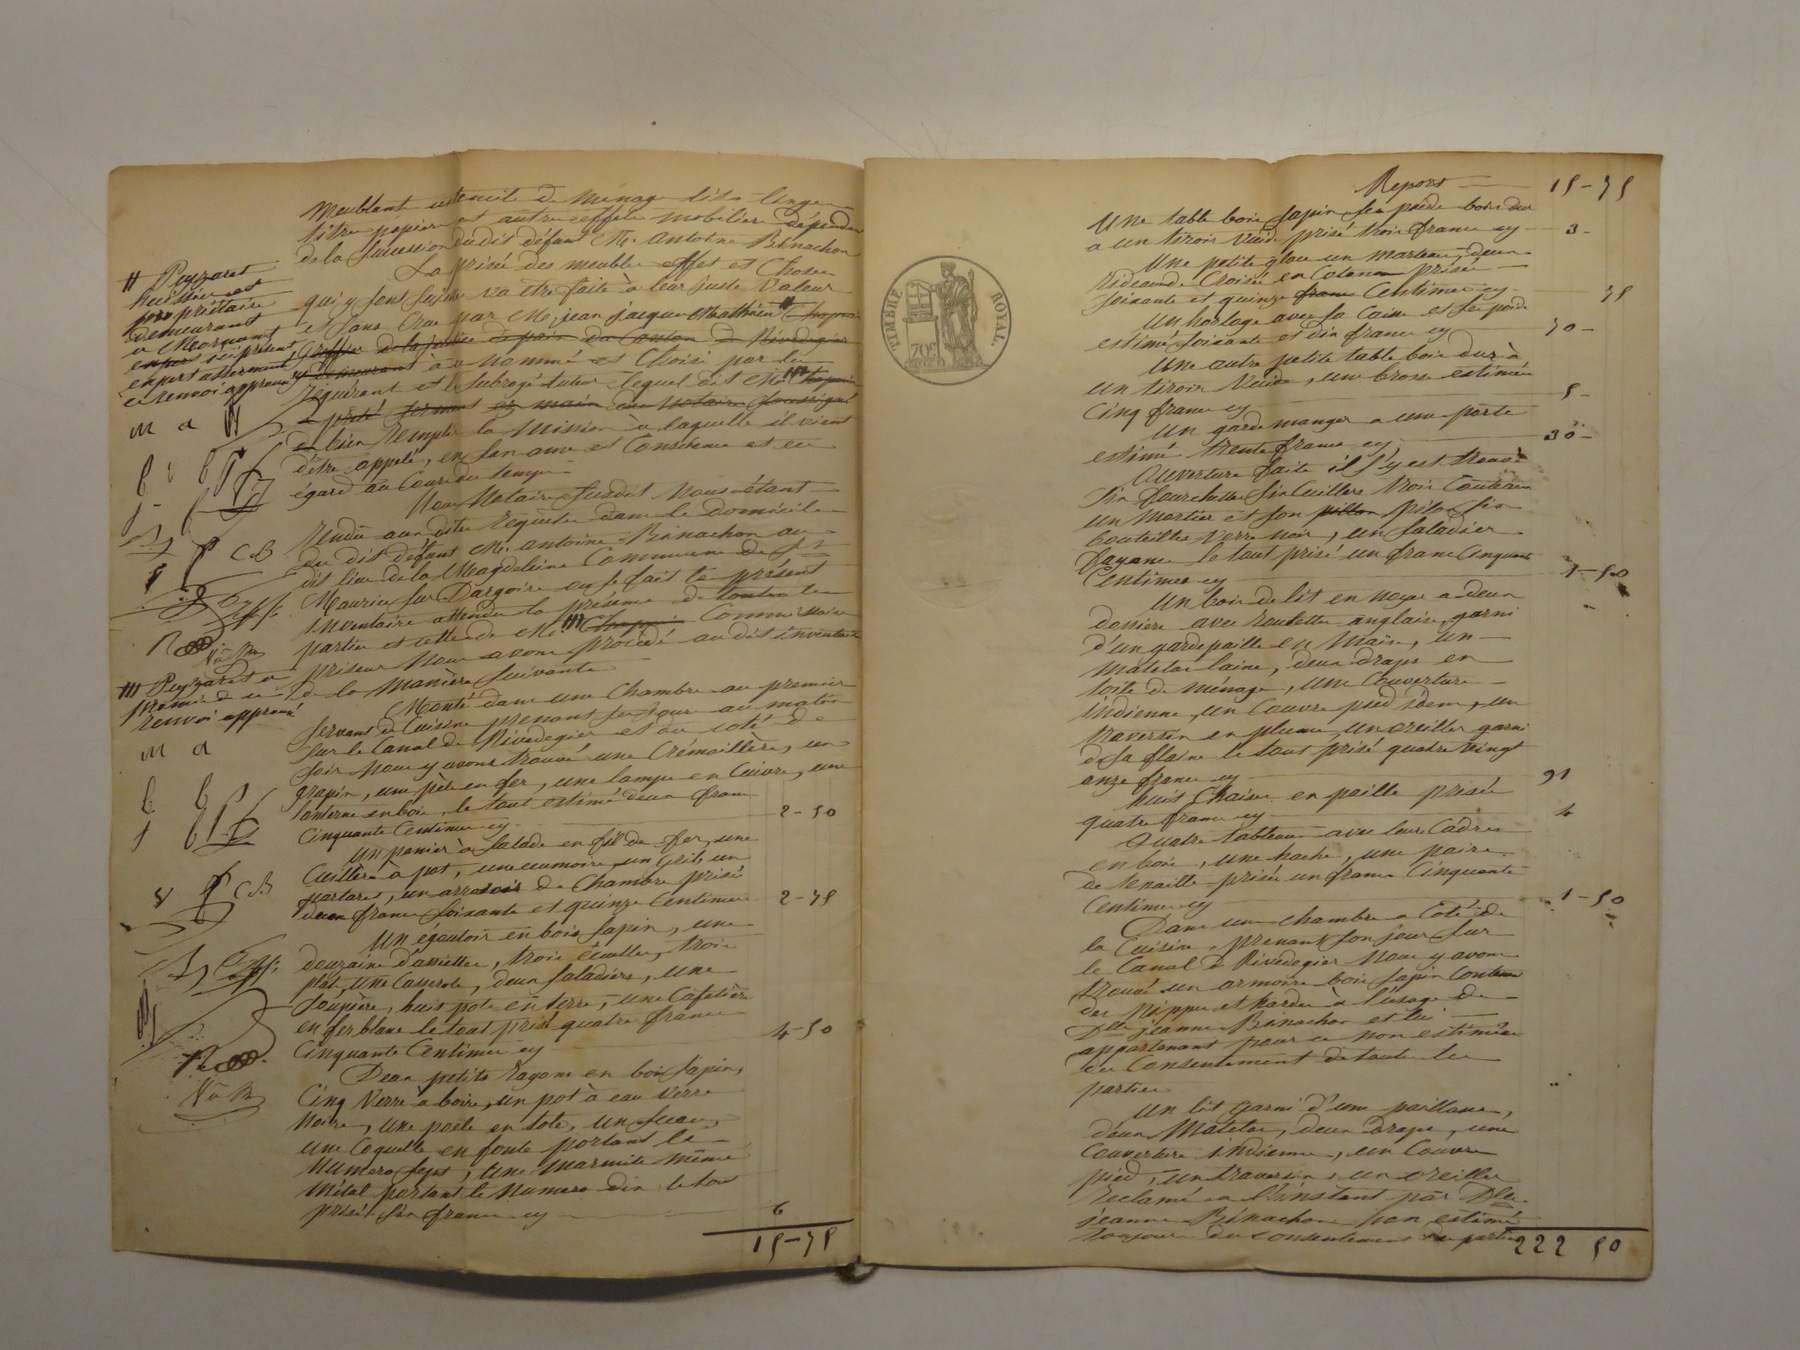 meublant ustencile de ménage lits linge
titre papiers et autre effets mobilier dépendan
de la succession dudit défunt M. Antoine Binachon
La prisée des meuble effet et Chose
qui y sont sujette va être faite a leur juste valeur
et sans Crue par M. jean jacque Mathieu # Chapuis
Greffier de la justice de paix du Canton de Rivedegier
y demeurant à ce nommé et Choisi par le
requérant et le subrogé tuteur lequel dit M. ### Chapuis
a prêté serment es main du Notaire soussigné
de bien remplir la Mission a laquelle il vient
d'être appelé, en son ame et Conscience et eu
égard au Cour du temps
Nous Notaire susdit nous étant
rendu aux dites requête dans le domicile
du dit défunt M. Antoine Binachon au
dit lieu de la Magdeleine Commune de St
Maurice sur Dargoire ou se fait le présent
inventaire attendu la présence de toute les
partie et celle de M. ### Chapuis Commissaire
priseur Nous avons procédé au dit inventaire
de la Manière suivante
Monté dans une Chambre au premier
servant de Cuisine prenant ses jour au matin
sur le Canal de Rivedegier et du coté de
soir nous y avons trouvé une Crémaillère, un
grapin, une pèle en fer, une lampe en Cuivre, une
lanterne en bois, le tout estimé deux franc
Cinquante Centimes cy 2-50
Un panier à salade en fil de fer, une
Cuillère à pot, une écumoire, un gril, un
partare, un arrosoir de Chambre prisé
deux franc soixante et quinze Centimes 2-75
Un égoutoir en bois sapin, une
douzaine d'assiettes, trois écuelles, trois
plat, une Casserole, deux saladiers, une
soupière, huit pots en terre, une Cafetière
en fer blanc le tout prisé quatre francs
Cinquante Centimes cy 4-50
Deux petits rayons en bois sapin,
Cinq verre à boire, un pot à eau verre
Noire, une poële en tole, un seau,
une Coquelle en fonte portant le
Numero sept, une marmite même
métal portant le numero dix le tout
prisé six francs cy 6
15-75
# Peyzaret
huissier et
propriétaire
demeurant
a Mornant
expert ici présent
expert assermenté
ce renvoi approuvé
m a
C B
Vu Bn
### Peyzaret a
première
renvoi approuvé
m a
C B
Vu Bn
TIMBRE ROYAL.
70c
Report 15-75
Une table bois sapin ses pieds bois dur
a un tiroir vide prisé trois francs cy 3-
Une petite glace un marteau, deux
rideaux de Croisée en Cotonne prisés
soixante et quinze franc Centimes cy 75
Un horloge avec sa Caisse et ses poids
estimé soixante et dix francs cy 70-
Une autre petite table bois dur à
un tiroir vide, une brosse estimée
Cinq francs cy 5-
Un garde manger a une porte
estimé trente francs cy 30-
Ouverture faite il s'y est trouvé
six fourchettes six Cuillers trois Couteaux
un Mortier et son pillon pilon six
bouteilles verre noir, un saladier
fayance le tout prisé un franc Cinquante
Centimes cy 1-50
Un bois de lit en noyer a deux
dossiers avec roulette anglaise, garni
d'un gardepaille en Maïs, un
matelas laine, deux draps en
toile de ménage, une Couverture
indienne, un Couvre pied idem, un
traversin en plume, un oreiller garni
de sa flaine le tout prisé quatre vingt
onze francs cy 91
huit Chaises en paille prisés
quatre francs cy 4
Quatre tableaux avec leurs Cadres
en bois, une hache, une paire
de tenaille prisée un franc Cinquante
Centimes cy 1-50
Dans une chambre a Coté de
la Cuisine, prenant son jour sur
le Canal de Rivedegier Nous y avons
trouvé un armoire bois sapin Contenant
des Nippes et hardes à l'usage de
Dlle jeanne Binachon et lui
appartenant pour ce non estimées
du Consentement de toute les
parties
Un lit garni d'une paillasse,
deux Matelas, deux Draps, une
Couverture indienne, un Couvre
pied, un traversin, un oreiller
reclamé a l'instant par Dlle
jeanne Binachon non estimé
toujours du consentement des parties
222 50